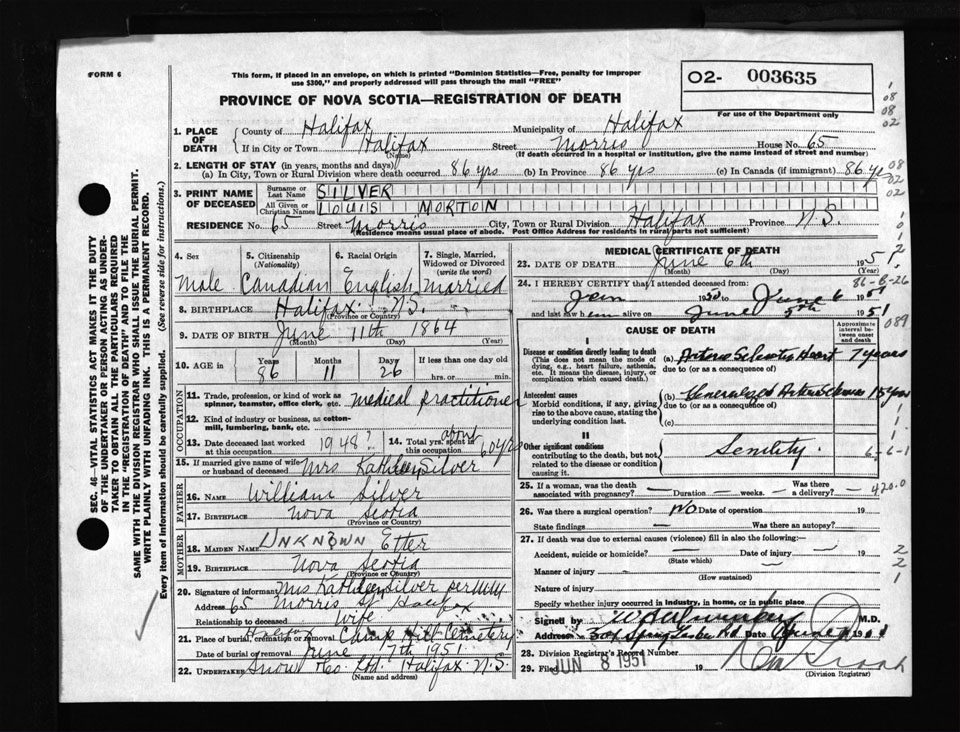 FORM 6
This form, if placed in an envelope, on which is printed "Dominion Statistics—Free, penalty for improper
use $300," and properly addressed will pass through the mail "FREE"
O2- 003635
For use of the Department only
PROVINCE OF NOVA SCOTIA—REGISTRATION OF DEATH
1. PLACE OF DEATH
County of Halifax Municipality of Halifax
If in City or Town Halifax Street Morris House No. 65
(Name) (If death occurred in a hospital or institution, give the name instead of street and number)
2. LENGTH OF STAY (in years, months and days)
(a) In City, Town or Rural Division where death occurred 86 yrs (b) In Province 86 yrs (c) In Canada (if immigrant) 86 yrs
3. PRINT NAME OF DECEASED
Surname or Last Name SILVER
All Given or Christian Names LOUIS MORTON
RESIDENCE No. 65 Street Morris City, Town or Rural Division Halifax Province N.S.
(Residence means usual place of abode. Post Office Address for residents in rural parts not sufficient)
4. Sex
Male
5. Citizenship
(Nationality)
Canadian
6. Racial Origin
English
7. Single, Married,
Widowed or Divorced
(write the word)
married
8. BIRTHPLACE Halifax N.S.
(Province or Country)
9. DATE OF BIRTH June 11th 1864
(Month) (Day) (Year)
10. AGE Years 86 Months 11 Days 26 If less than one day old
hrs. or min.
OCCUPATION
11. Trade, profession, or kind of work as
spinner, teamster, office clerk, etc. medical practitioner
12. Kind of industry or business, as cotton-
mill, lumbering, bank, etc.
13. Date deceased last worked
at this occupation 1948?
14. Total yrs. spent in
this occupation about 60 yrs
15. If married give name of wife
or husband of deceased Mrs Kathleen Silver
FATHER
16. Name William Silver
17. BIRTHPLACE Nova Scotia
(Province or Country)
MOTHER
18. MAIDEN NAME UNKNOWN Etter
19. BIRTHPLACE Nova Scotia
(Province or Country)
20. Signature of informant Mrs Kathleen Silver per
Address 65 Morris St Halifax
Relationship to deceased Wife
21. Place of burial, cremation or removal Halifax Camp Hill Cemetery
Date of burial or removal June 7th 1951
22. UNDERTAKER Snow & Co Ltd. Halifax N.S.
(Name and address)
MEDICAL CERTIFICATE OF DEATH
23. DATE OF DEATH June 6th 1951
(Month) (Day) (Year)
24. I HEREBY CERTIFY that I attended deceased from
Jan 1950 to June 6 1951
and last saw him alive on June 5th 1951
CAUSE OF DEATH
Approximate
interval between
onset and
death
I
Disease or condition directly leading to death
(This does not mean the mode of
dying, e.g., heart failure, asthenia,
etc. It means the disease, injury, or
complication which caused death.
(a) Arterio Sclerotic Heart 7 years
due to (or as a consequence of)
Antecedent causes
Morbid conditions, if any, giving
rise to the above cause, stating the
underlying condition last.
(b) Generalized Arterio Sclerosis 15 years
due to (or as a consequence of)
(c)
II
Other significant conditions
contributing to the death, but not
related to the disease or condition
causing it.
Senility.
25. If a woman, was the death
associated with pregnancy? — Duration — weeks. — Was there
a delivery? —
26. Was there a surgical operation? NO Date of operation 19
State findings — Was there an autopsy?
27. If death was due to external causes (violence) fill in also the following:—
Accident, suicide or homicide? — Date of injury — 19
(State which)
Manner of injury —
(How sustained)
Nature of injury
Specify whether injury occurred in industry, in home, or in public place
Signed by M.D.
Address Spring Garden Rd Date
28. Division Registrar's Record Number
29. Filed JUN 8 1951 19
(Division Registrar)
SEC. 46—VITAL STATISTICS ACT MAKES IT THE DUTY
OF THE UNDERTAKER OR PERSON ACTING AS UNDER-
TAKER TO OBTAIN ALL THE PARTICULARS REQUIRED
IN THE "REGISTRATION OF DEATH" AND TO FILE THE
SAME WITH THE DIVISION REGISTRAR WHO SHALL ISSUE THE BURIAL PERMIT.
WRITE PLAINLY WITH UNFADING INK. THIS IS A PERMANENT RECORD.
Every item of information should be carefully supplied. (See reverse side for instructions.)
1
08
08
02
08
02
02
0
1
2
86-8-26
089
6-6-1
420.0
2
2
1